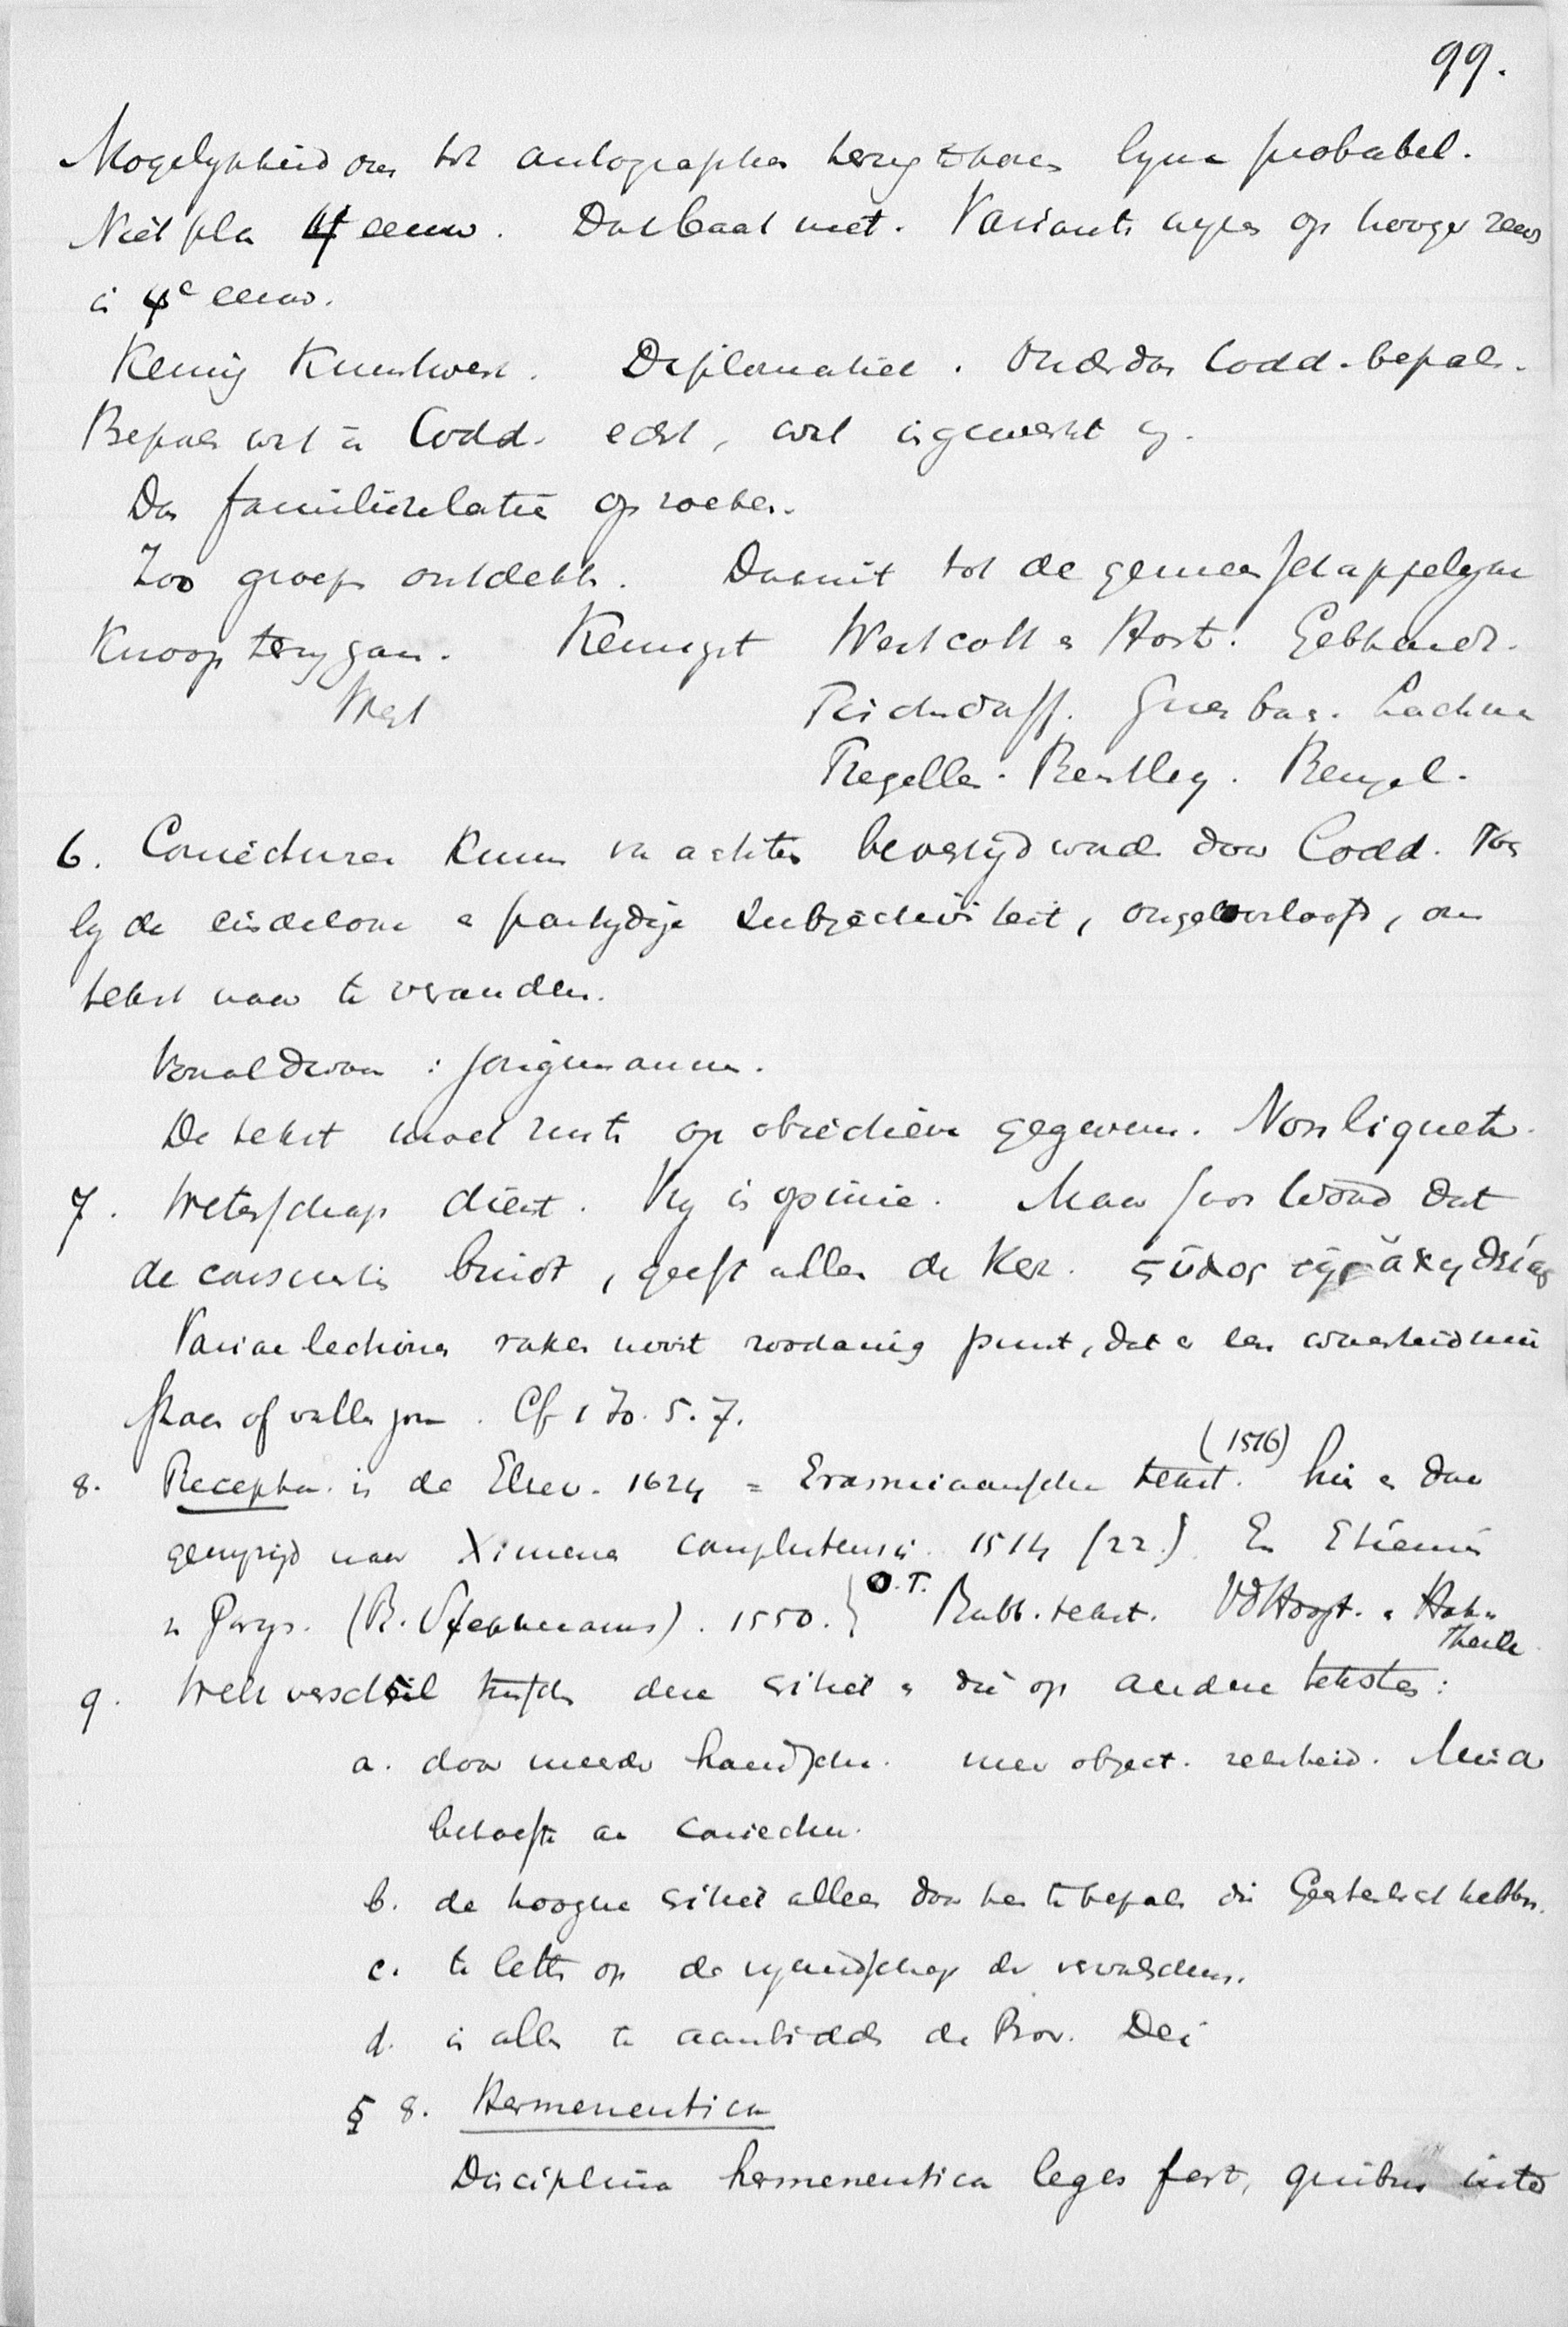 99.
Mogelykheid om tot autographen terug te komen lyne probabel.
Niet pla 4 eeuw. Dat baat niet. Variant wyzen op hooger reeds
in 4e eeuw.
Kennis Kunstwerk. Diplomatiek. Ouderdom Codd. bepalen.
Bepalen wat in Codd. echt, wat ingewerkt is.
Dan familierelatie opzoeken.
Zoo groep ontdekt. Daaruit tot de gemeenschappelyke
Knoop teruggaan. Westcott & Hort. Gebhardt.
West Tischdorff. Griesbac. Lachm
Tregelles. Bentley. Bengel.
6. Conjecturen kunnen van achter bevestigd worden door Codd. Toch
by de eindelooze en partydige subjectiviteit, ongeoorloofd, om
tekst naar te veranderen.
: jongmannen.
De tekst moet rusten op objectieve gegevens. Non liquet.
7. Wetenschap dient. Zy is opinie. Maar het woord dat
de conscientie bindt, geeft alleen de Kerk. στῦλος τῆς ἀληθείας
Variae lectiones raken nooit zoodanig punt, dat er een waarheid mee
staan of vallen zou. Cf 1 Jo. 5.7.
8. Recepta is de Elzev. 1624 = Erasmiaansche tekst. (1516) hier en daar
gewyzigd naar Ximenes complutensis 1514 (22.) En Etienne
in Parys. (R. Stephanus). 1550. } O.T. Rabb. tekst. Vd Hoogt. & Hahn
Theile
9. Welk verschil tusschen deze critiek en die op andere teksten:
a. door meerder handschr. meer object. zekerheid. Minder
behoefte aan conjectuur.
b. de hoogere critiek alleen door hen te bepalen die Geestelyk hebben.
c. te letten op de vyandschap der vervalschers.
d. in alles te aanbidden de Prov. Dei
§ 8. Hermeneutica
Disciplina hermeneutica leges fert, quibus inter